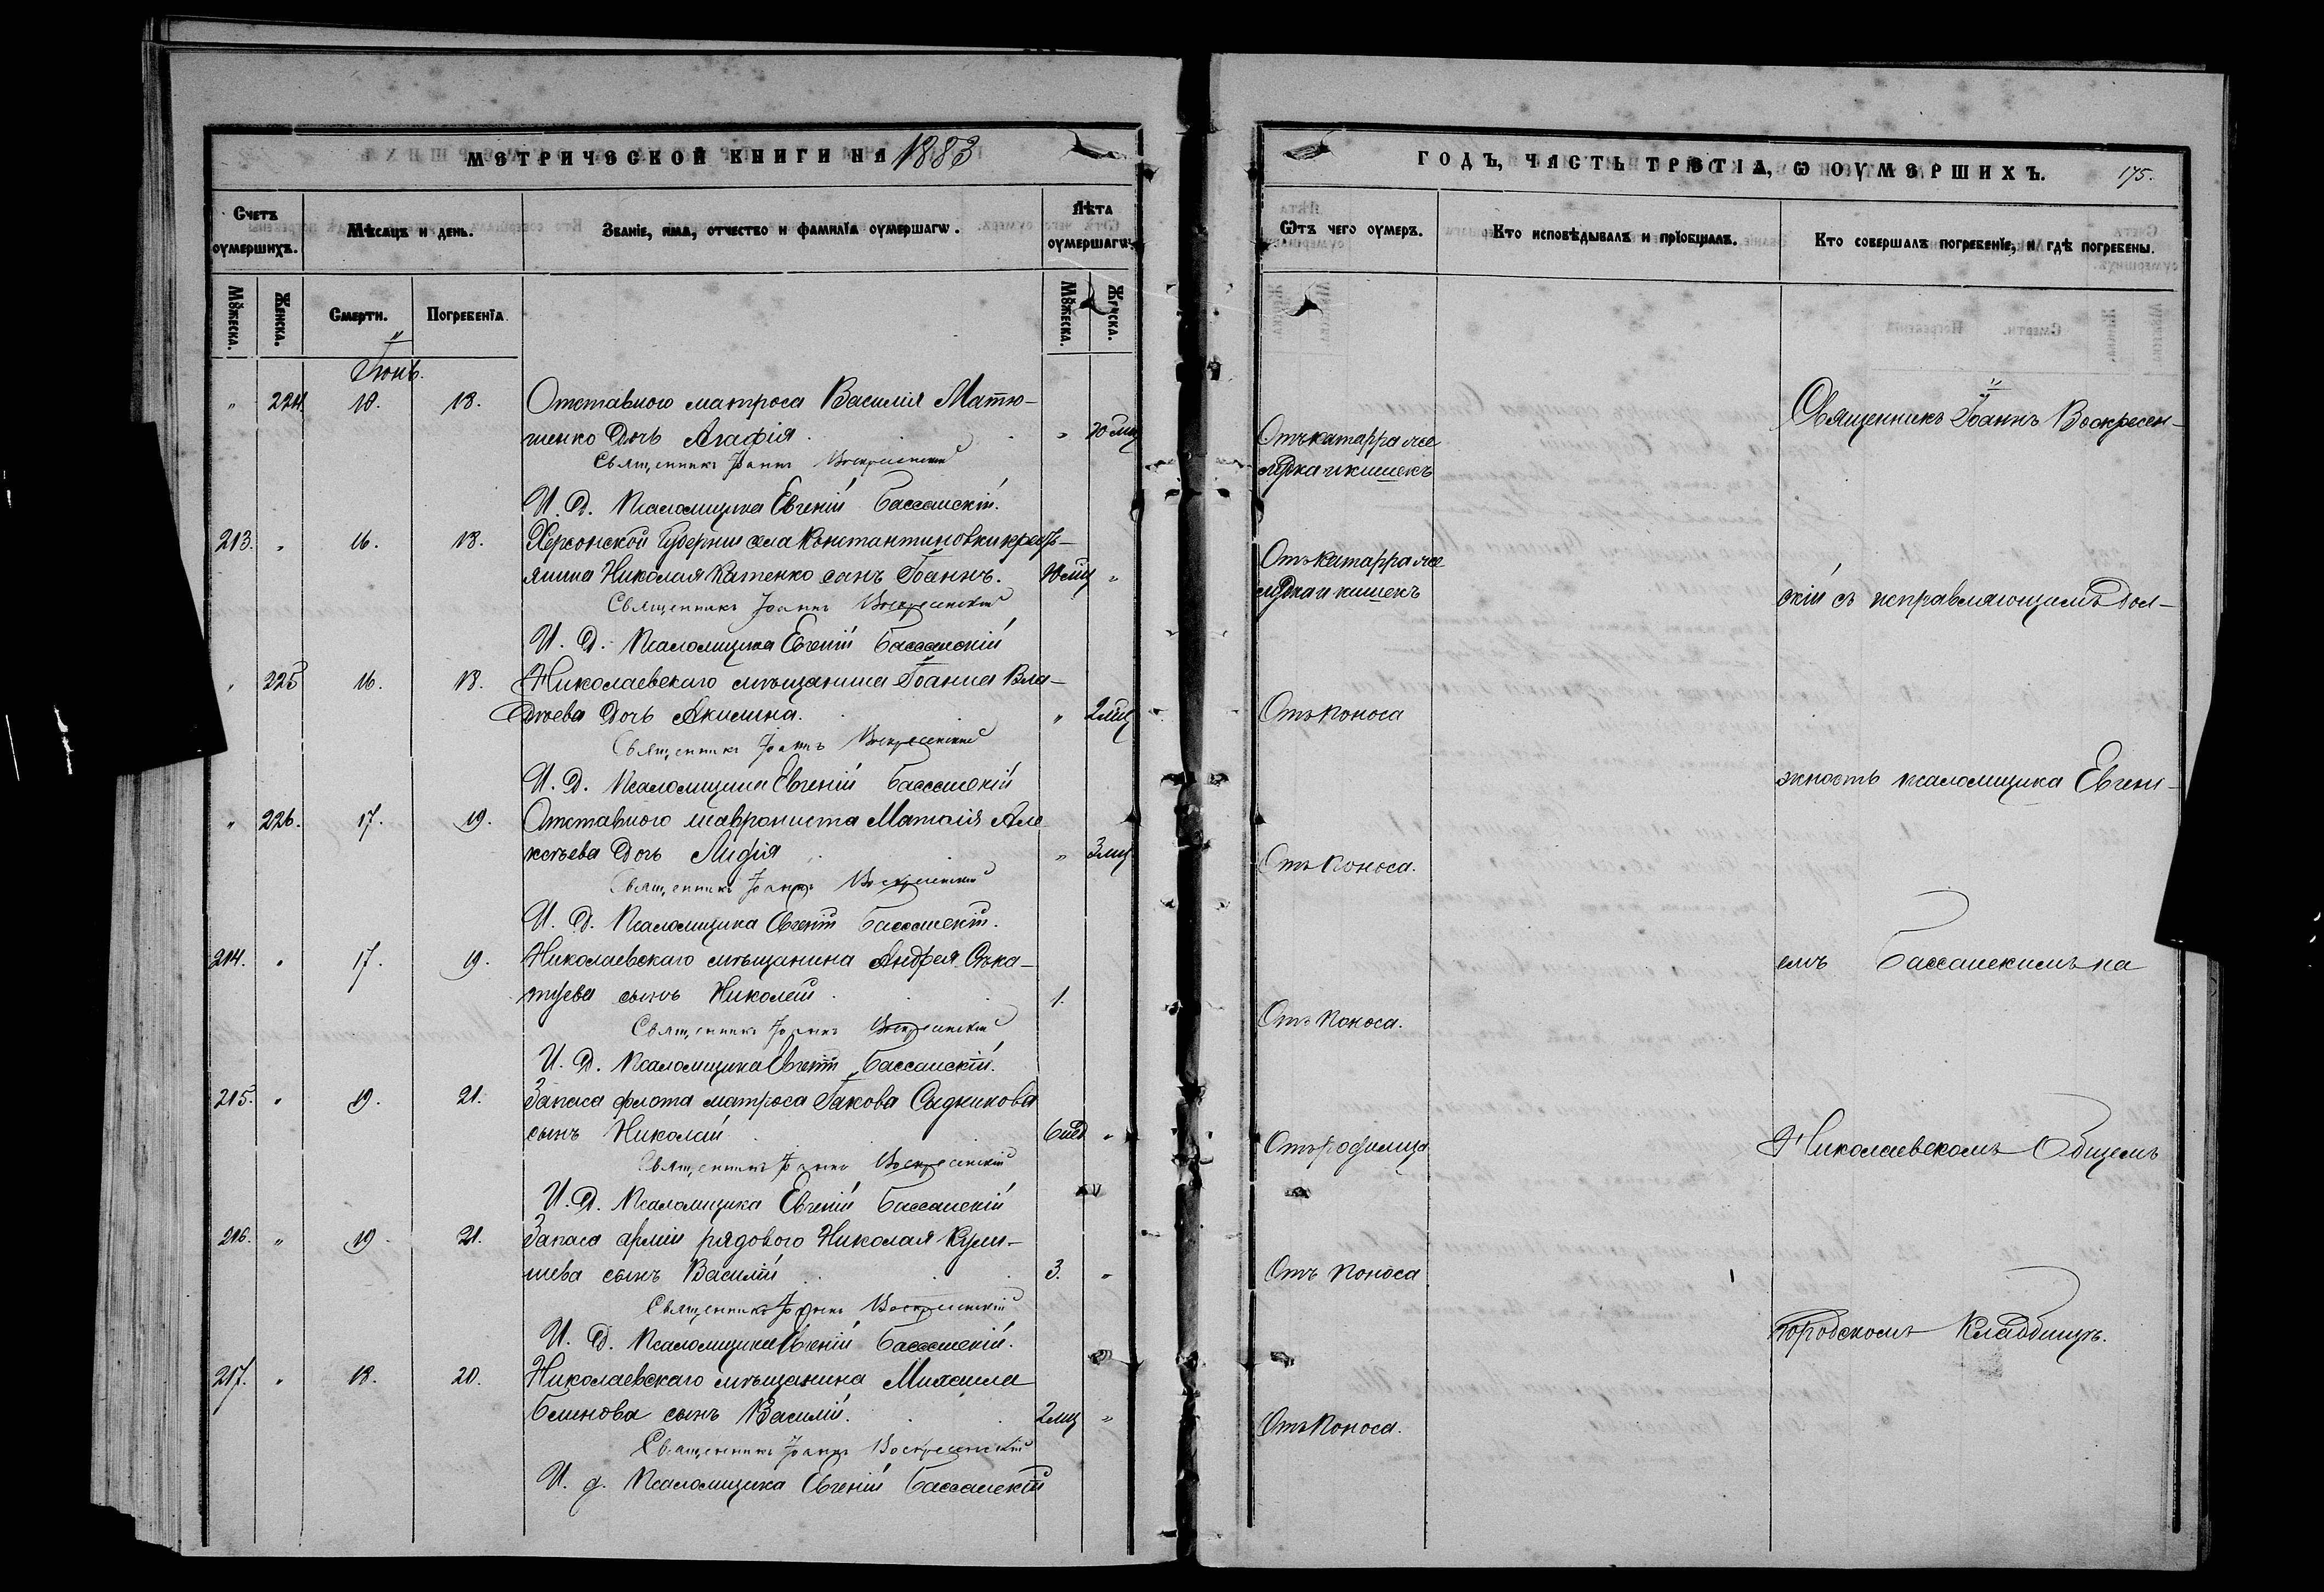 МЕТРИЧЕСКОЙ КНИГИ НА 1883
Счетъ оумершихъ.
Мѣсяцъ и день.
Званіе, имя, отчество и фамилїа оумершагѡ.
Лѣта оумершагѡ.
Мꙋжеска.
Женска.
Смерти.
Погребенїа
Мꙋжеска.
Женска.
Іюнь.
" 224. 18. 18. Отставного матроса Василія Матю-
шенко дочь Агафія. " 10 мц
Священникъ Іоаннъ Воскресенскій
И. Д. Псаломщика Евгеній Бассанскій.
213. " 16. 18. Херсонской Губерніи села Константиновки крестъ-
янина Николая Катенко сынъ Іоаннъ. 10 мц "
Священникъ Іоаннъ Воскресенскій
И. Д. Псаломщика Евгеній Бассанскій
" 225 16. 18. Николаевскаго мѣщанина Іоанна Вла-
дочь Акилина. " 2 мц
Священникъ Іоаннъ Воскресенскій
И. Д. Псаломщика Евгеній Бассанскій
" 226. 17. 19. Отставного Але-
ксѣева дочь " 3 мц
Священникъ Іоаннъ Воскресенскій
И. Д. Псаломщика Евгеній Бассанскій.
214. " 17. 19. Николаевскаго мѣщанина Андрея
сынъ Николай. 1.
Священникъ Іоаннъ Воскресенскій
И. Д. Псаломщика Евгеній Бассанскій.
215. " 19. 21. Запаса флота матроса Іакова Садчикова
сынъ Николай 6 "
Священникъ Іоаннъ Воскресенскій
И. Д. Псаломщика Евгеній Бассанскій
216. " 19. 21. Запаса арміи рядового Николая
шева сынъ Василій 3. "
Священникъ Іоаннъ Воскресенскій
И. Д. Псаломщика Евгеній Бассанскій.
217. " 18. 20. Николаевскаго мѣщанина Михаила
Блинова сынъ Василій. 2 мц "
Священникъ Іоаннъ Воскресенскій
И. д. Псаломщика Евгеній Бассанскій
ГОДЪ, ЧАСТЬ ТРЕТІА, Ѡ ОУМЕРШИХЪ. 175.
Ѿтъ чего оумеръ.
Кто исповѣдывалъ и прїобщалъ.
Кто совершалъ погребенїе, и гдѣ погребены.
Отъ катарра же-
лудка и кишекъ
Отъ катарра же-
лудка и кишекъ
Отъ поноса
Отъ поноса.
Отъ поноса.
Отъ родимца
Отъ поноса
Отъ поноса.
Священникъ Іоаннъ Воскресен-
скій съ исправляющимъ дол-
жность псаломщика Евгені-
емъ Бассанскимъ на
Николаевскомъ Общемъ
Городскомъ Кладбищѣ.